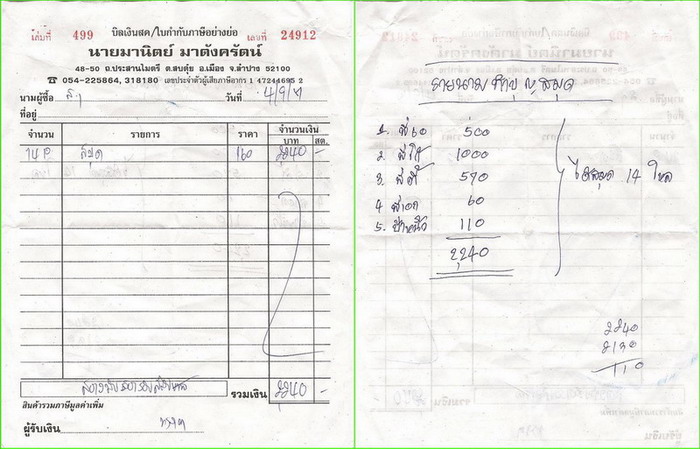 เล่มที่ 499 บิลเงินสด/ใบกำกับภาษีอย่างย่อ เลขที่ 24912
นายมานิตย์ มาตังครัตน์
48-50 ถ.ประสานไมตรี ต.สบตุ๋ย อ.เมือง จ.ลำปาง 52100
☎ 054-225864, 318180 เลขประจำตัวผู้เสียภาษีอากร 1 47244695 2
นามผู้ซื้อ วันที่ 4/9/
ที่อยู่
จำนวน รายการ ราคา จำนวนเงิน
บาท สต.
14 P สมุด 160 2240 -
รวมเงิน 2240 -
สินค้ารวมภาษีมูลค่าเพิ่ม
ผู้รับเงิน
รายนาม ทำบุญสมุด
1. 500
2. 1000
3. 570
4. 60
5. 110
2,240
ได้สมุด 14 โหล
2240
2130
110